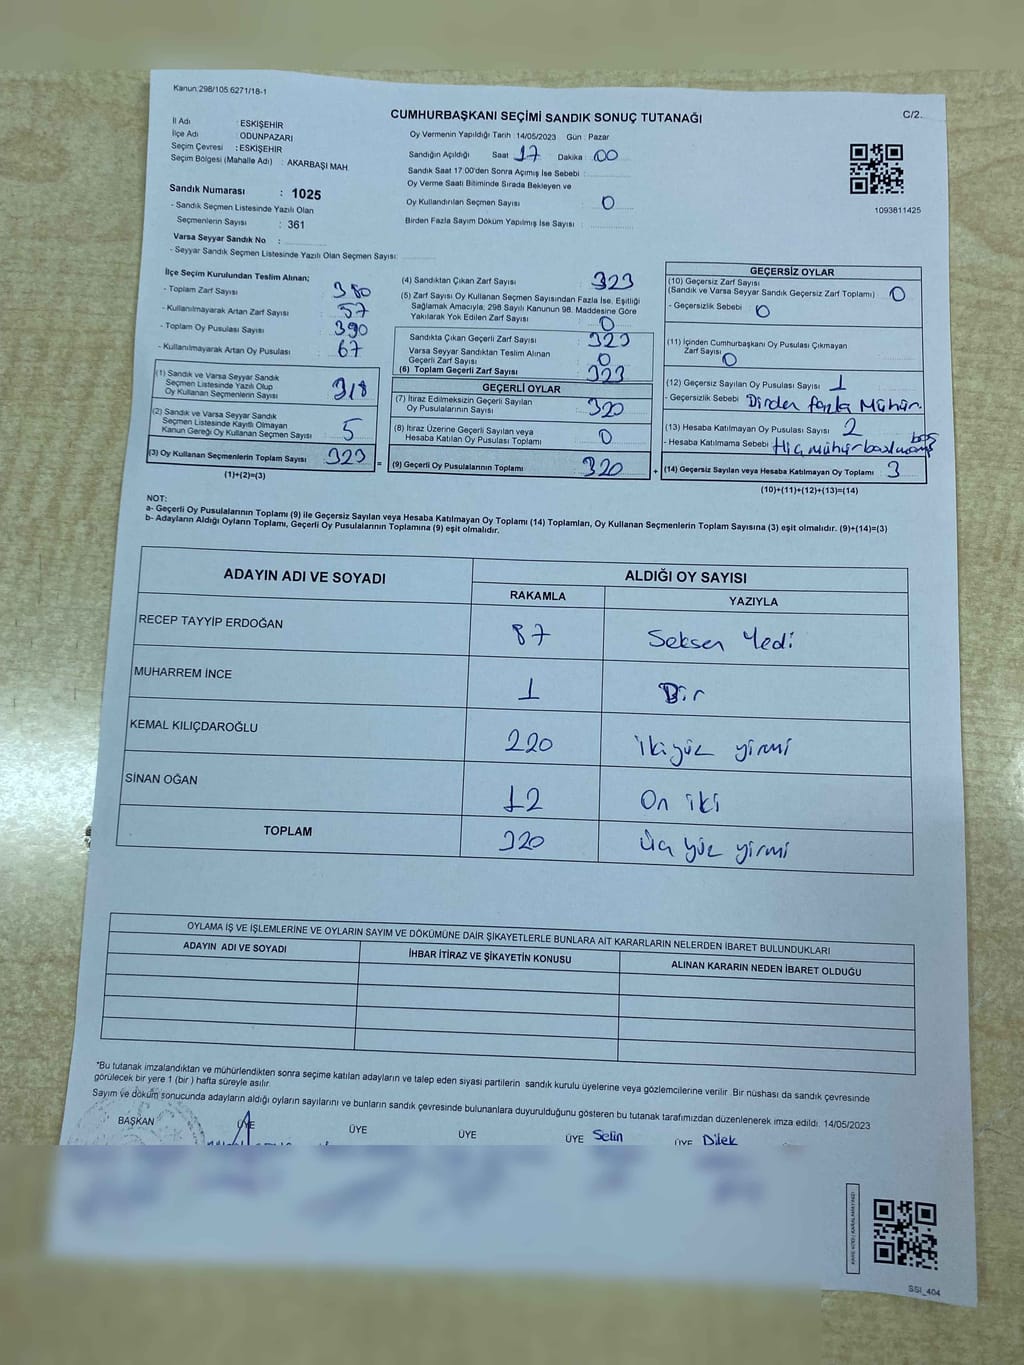 Kanun:298/105.6271/18-1
CUMHURBAŞKANI SEÇİMİ SANDIK SONUÇ TUTANAĞI
C/2.
İl Adı : ESKİŞEHİR
İlçe Adı : ODUNPAZARI
Seçim Çevresi : ESKİŞEHİR
Seçim Bölgesi (Mahalle Adı) : AKARBAŞI MAH.
Sandık Numarası : 1025
- Sandık Seçmen Listesinde Yazılı Olan
Seçmenlerin Sayısı : 361
Varsa Seyyar Sandık No :
- Seyyar Sandık Seçmen Listesinde Yazılı Olan Seçmen Sayısı:
Oy Vermenin Yapıldığı Tarih :14/05/2023 Gün : Pazar
Sandığın Açıldığı Saat 17 Dakika : 00
Sandık Saat 17:00'den Sonra Açımış İse Sebebi :
Oy Verme Saati Bitiminde Sırada Bekleyen ve
Oy Kullandırılan Seçmen Sayısı : 0
Birden Fazla Sayım Döküm Yapılmış İse Sayısı :
1093811425
İlçe Seçim Kurulundan Teslim Alınan;
- Toplam Zarf Sayısı : 380
- Kullanılmayarak Artan Zarf Sayısı : 57
- Toplam Oy Pusulası Sayısı : 390
- Kullanılmayarak Artan Oy Pusulası : 67
(1) Sandık ve Varsa Seyyar Sandık
Seçmen Listesinde Yazılı Olup
Oy Kullanan Seçmenlerin Sayısı : 318
(2) Sandık ve Varsa Seyyar Sandık
Seçmen Listesinde Kayıtlı Olmayan
Kanun Gereği Oy Kullanan Seçmen Sayısı : 5
(3) Oy Kullanan Seçmenlerin Toplam Sayısı : 323
(1)+(2)=(3)
(4) Sandıktan Çıkan Zarf Sayısı : 323
(5) Zarf Sayısı Oy Kullanan Seçmen Sayısından Fazla İse, Eşitliği
Sağlamak Amacıyla; 298 Sayılı Kanunun 98. Maddesine Göre
Yakılarak Yok Edilen Zarf Sayısı : 0
Sandıkta Çıkan Geçerli Zarf Sayısı : 323
Varsa Seyyar Sandıktan Teslim Alınan
Geçerli Zarf Sayısı : 0
(6) Toplam Geçerli Zarf Sayısı : 323
GEÇERLİ OYLAR
(7) İtiraz Edilmeksizin Geçerli Sayılan
Oy Pusulalarının Sayısı : 320
(8) İtiraz Üzerine Geçerli Sayılan veya
Hesaba Katılan Oy Pusulası Toplamı : 0
= (9) Geçerli Oy Pusulalarının Toplamı : 320 +
GEÇERSİZ OYLAR
(10) Geçersiz Zarf Sayısı
(Sandık ve Varsa Seyyar Sandık Geçersiz Zarf Toplamı) : 0
- Geçersizlik Sebebi : 0
(11) İçinden Cumhurbaşkanı Oy Pusulası Çıkmayan
Zarf Sayısı : 0
(12) Geçersiz Sayılan Oy Pusulası Sayısı : 1
- Geçersizlik Sebebi : Birden fazla Mühür.
(13) Hesaba Katılmayan Oy Pusulası Sayısı : 2
- Hesaba Katılmama Sebebi : Hiç mühür boş
(14) Geçersiz Sayılan veya Hesaba Katılmayan Oy Toplamı : 3
(10)+(11)+(12)+(13)=(14)
NOT:
a- Geçerli Oy Pusulalarının Toplamı (9) ile Geçersiz Sayılan veya Hesaba Katılmayan Oy Toplamı (14) Toplamları, Oy Kullanan Seçmenlerin Toplam Sayısına (3) eşit olmalıdır. (9)+(14)=(3)
b- Adayların Aldığı Oyların Toplamı, Geçerli Oy Pusulalarının Toplamına (9) eşit olmalıdır.
ADAYIN ADI VE SOYADI ALDIĞI OY SAYISI
RAKAMLA YAZIYLA
RECEP TAYYİP ERDOĞAN 87 Seksen Yedi
MUHARREM İNCE 1 Bir
KEMAL KILIÇDAROĞLU 220 ikiyüz yirmi
SİNAN OĞAN 12 On iki
TOPLAM 320 Üç yüz yirmi
OYLAMA İŞ VE İŞLEMLERİNE VE OYLARIN SAYIM VE DÖKÜMÜNE DAİR ŞİKAYETLERLE BUNLARA AİT KARARLARIN NELERDEN İBARET BULUNDUKLARI
ADAYIN ADI VE SOYADI İHBAR İTİRAZ VE ŞİKAYETİN KONUSU ALINAN KARARIN NEDEN İBARET OLDUĞU
*Bu tutanak imzalandıktan ve mühürlendikten sonra seçime katılan adayların ve talep eden siyasi partilerin sandık kurulu üyelerine veya gözlemcilerine verilir. Bir nüshası da sandık çevresinde
görülecek bir yere 1 (bir) hafta süreyle asılır.
Sayım ve döküm sonucunda adayların aldığı oyların sayılarını ve bunların sandık çevresinde bulunanlara duyurulduğunu gösteren bu tutanak tarafımızdan düzenlenerek imza edildi. 14/05/2023
BAŞKAN ÜYE ÜYE ÜYE ÜYE Selin ÜYE Dilek
SSI_404